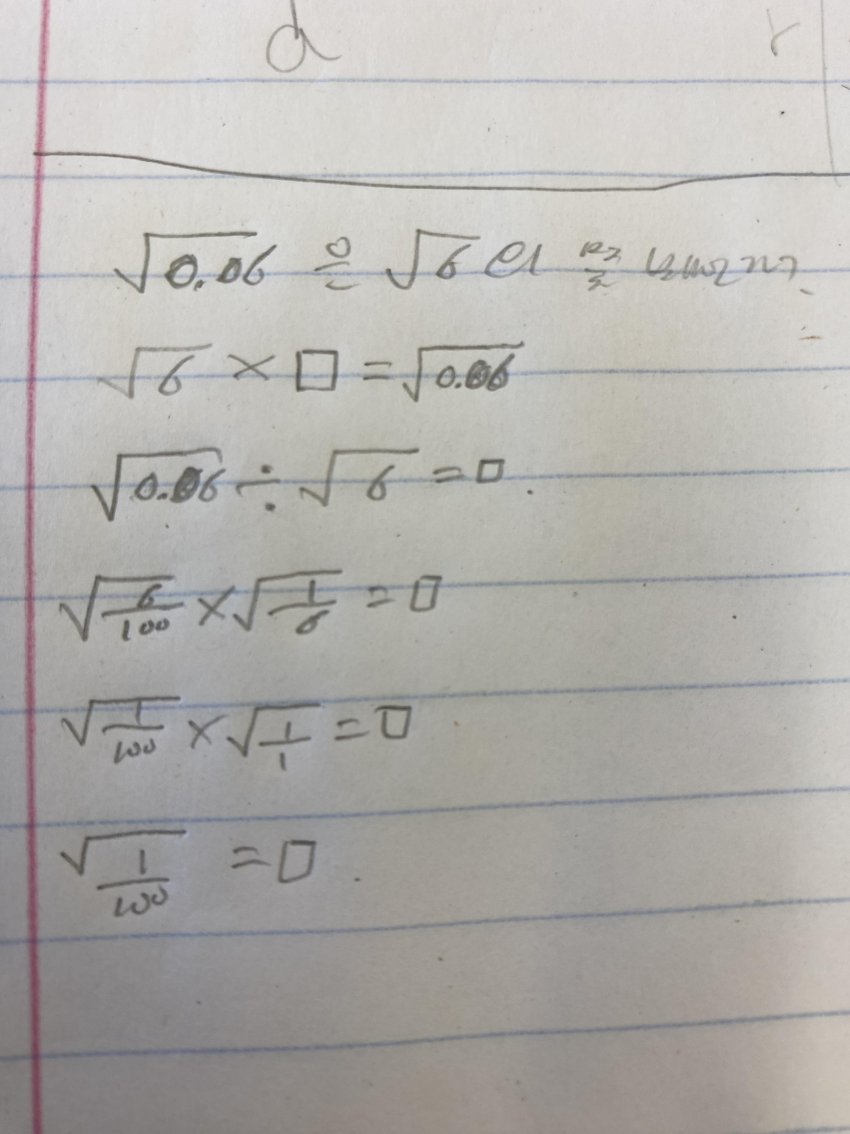 d r
√0.06 은 √6 의 몇 배인가?
√6 × □ = √0.06
√0.06 ÷ √6 = □.
√6/100 × √1/6 = □
√1/100 × √1/1 = □
√1/100 = □.